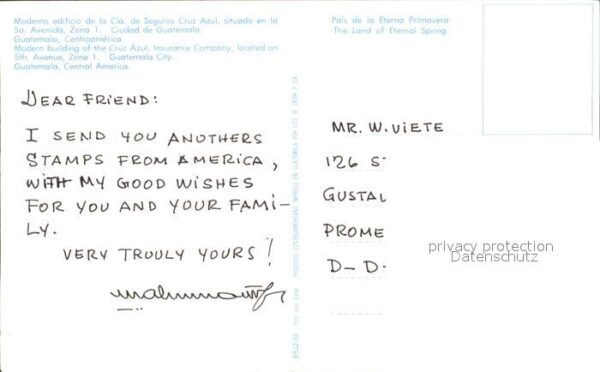 Moderno edificio de la Cia. de Seguros Cruz Azul, situado en la
5a. Avenida, Zona 1. Ciudad de Guatemala.
Guatemala, Centroamérica.
Modern building of the Cruz Azul, Insurance Company; located on
5th. Avenue, Zone 1. Guatemala City.
Guatemala, Central America.
País de la Eterna Primavera
The Land of Eternal Spring
DEAR FRIEND:
I SEND YOU ANOTHERS
STAMPS FROM AMERICA,
WITH MY GOOD WISHES
FOR YOU AND YOUR FAMI-
LY.
VERY TRULY YOURS!
MR. W. VIETE
126 S
GUSTAL
PROME
D-D
privacy protection
Datenschutz